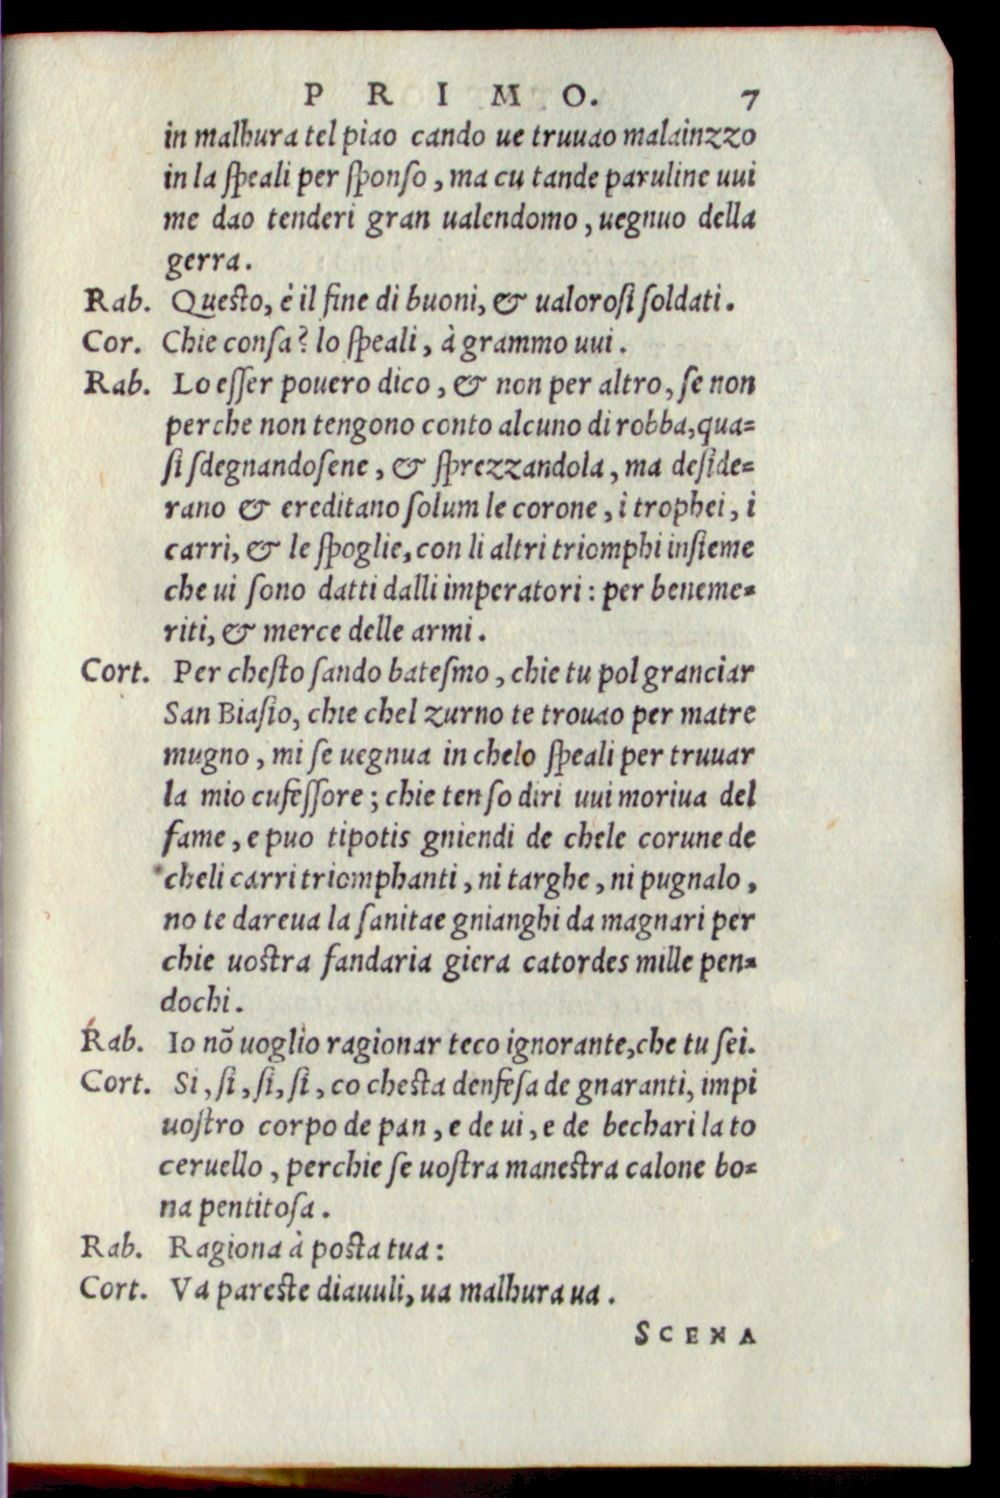 P R I M O. 7
in malhura tel piao cando ue truuao malainzzo
in la ſpeali per ſponſo, ma cu tande paruline uui
me dao tenderi gran ualendomo, uegnuo della
gerra.
Rab. Queſto, è il fine di buoni, & ualoroſi ſoldati.
Cor. Chie conſa? lo ſpeali, à grammo uui.
Rab. Lo eſſer pouero dico, & non per altro, ſe non
perche non tengono conto alcuno di robba, qua=
ſi ſdegnandoſene, & ſprezzandola, ma deſide=
rano & ereditano ſolum le corone, i trophei, i
carri, & le ſpoglie, con li altri triomphi inſieme
che ui ſono datti dalli imperatori: per beneme=
riti, & merce delle armi.
Cort. Per cheſto ſando bateſmo, chie tu pol granciar
San Biaſio, chie chel zurno te trouao per matre
mugno, mi ſe uegnua in chelo ſpeali per truuar
la mio cufeſſore; chie tenſo diri uui moriua del
fame, e puo tipotis gniendi de chele corune de
cheli carri triomphanti, ni targhe, ni pugnalo,
no te dareua la ſanitae gnianghi da magnari per
chie uoſtra fandaria giera catordes mille pen=
dochi.
Rab. Io nõ uoglio ragionar teco ignorante, che tu ſei.
Cort. Si, ſi, ſi, ſi, co cheſta denfeſa de gnaranti, impi
uoſtro corpo de pan, e de ui, e de bechari la to
ceruello, perchie ſe uoſtra maneſtra calone bo=
na pentitoſa.
Rab. Ragiona à poſta tua:
Cort. Va pareſte diauuli, ua malhura ua.
SCENA